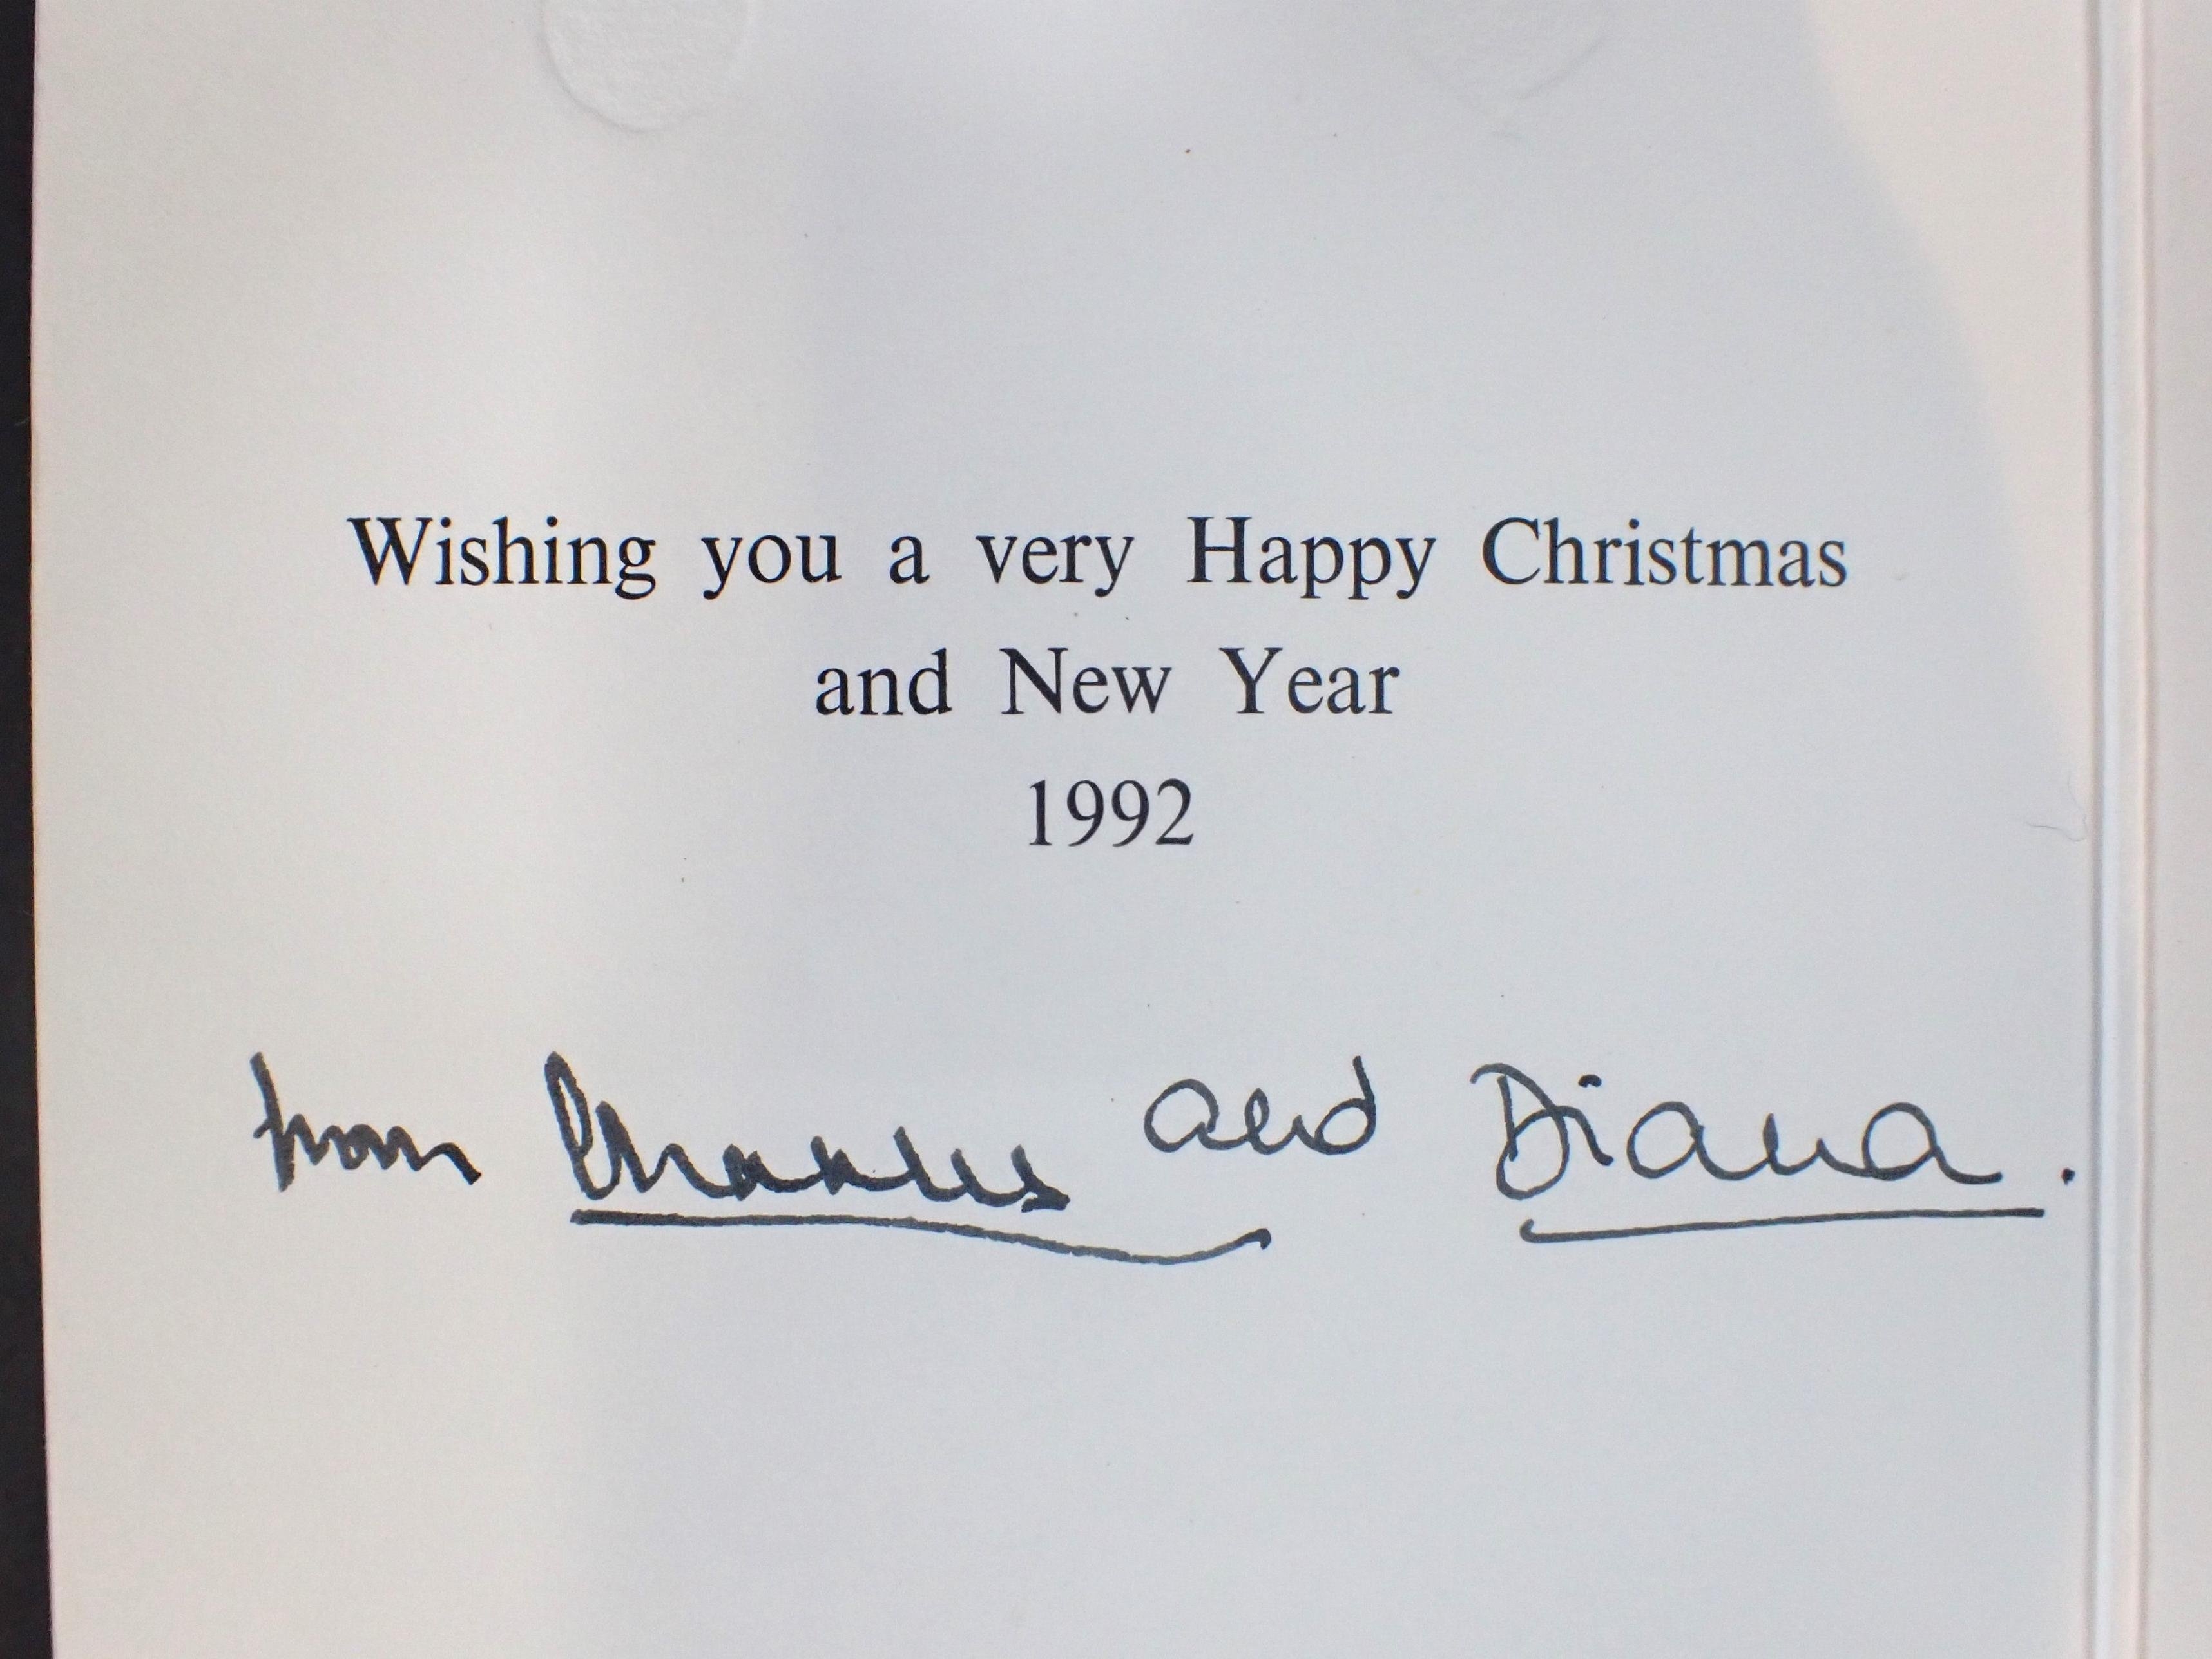 Wishing you a very Happy Christmas
and New Year
1992
from Charles and Diana.